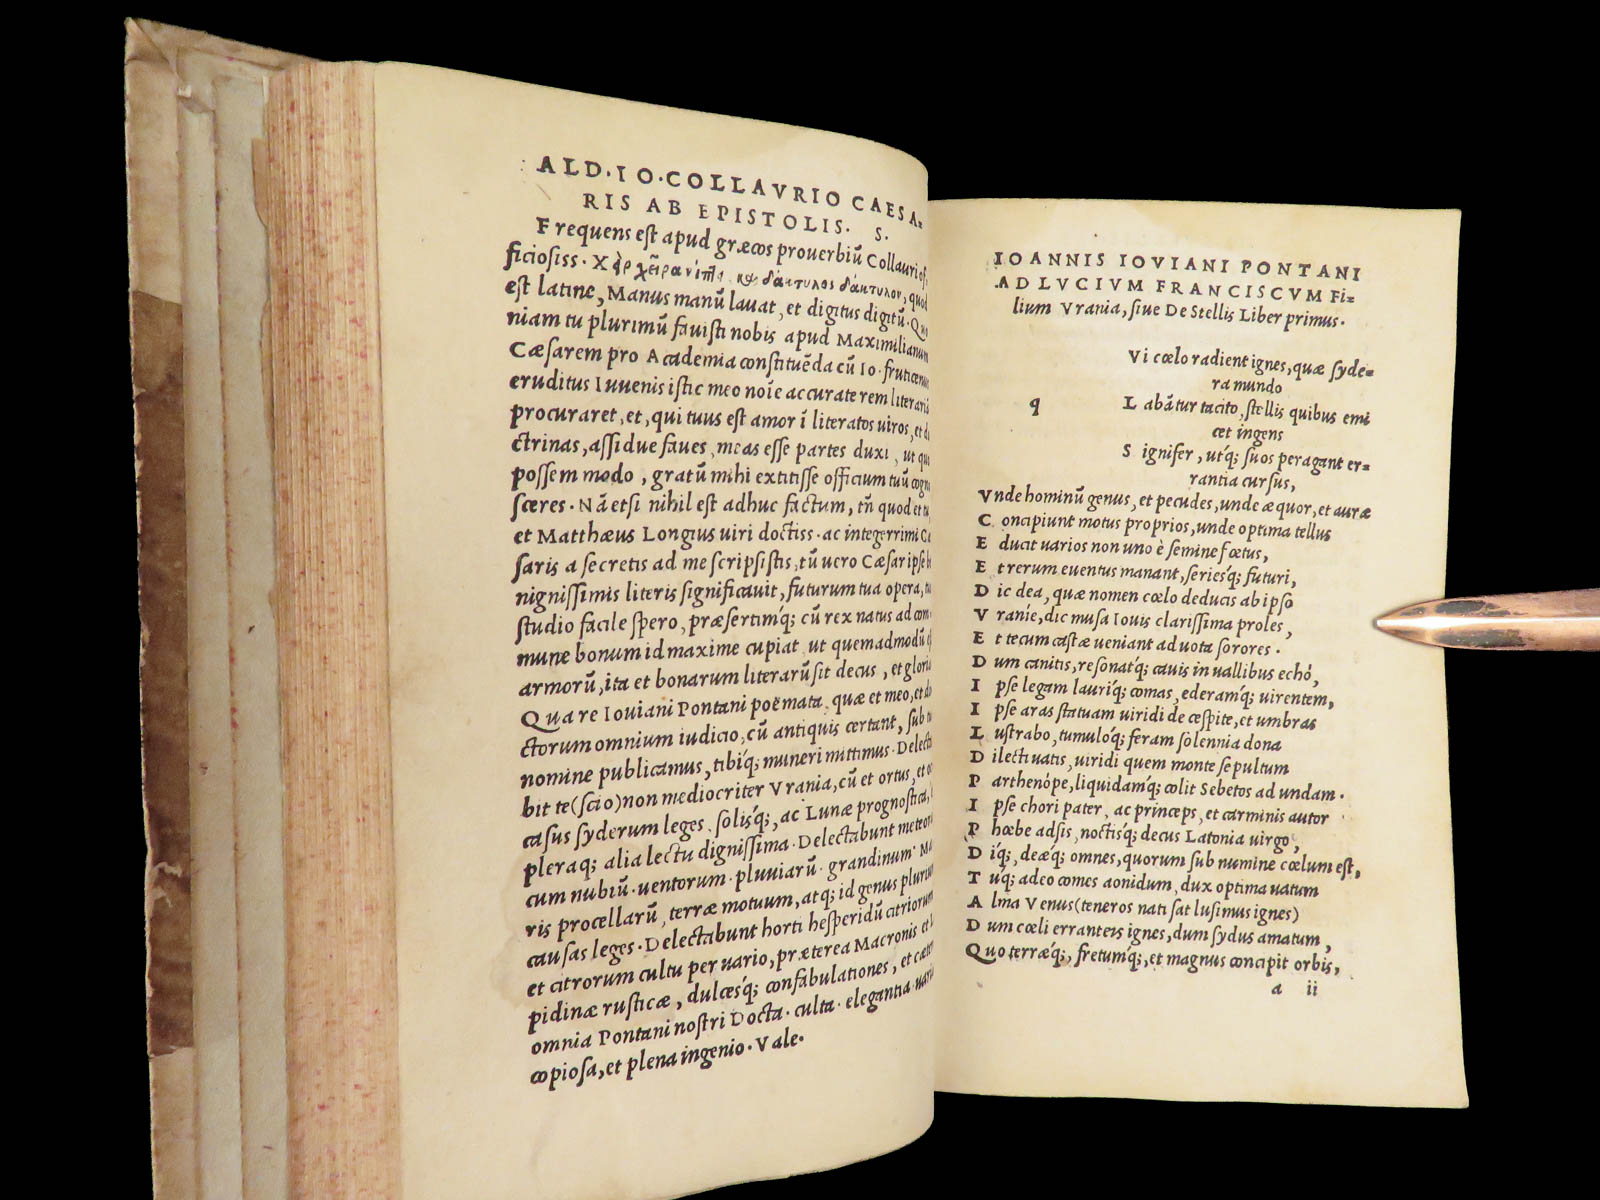 ALD. IO. COLLAVRIO CAESA-
RIS AB EPISTOLIS. S.
Frequens est apud græcos prouerbiū Collauri of
ficiosiss. Χὲρ χεῖρα νίπτει καὶ δάκτυλος δάκτυλον, quod
est latine, Manus manū lauat, et digitus digitū. Quo
niam tu plurimū fauisti nobis apud Maximilianum
Cæsarem pro Academia constituēda cū Io. fruticenus
eruditus Iuuenis istic meo noīe accurate rem literariā
procuraret, et, qui tuus est amor ī literatos uiros, et do
ctrinas, assidue faues, meas esse partes duxi, ut quo
possem modo, gratū mihi extitisse officium tuū cogno
sceres. Nā etsi nihil est adhuc factum, tñ quod et tu,
et Matthæus Longius uiri doctiss. ac integerrimi Cæ
saris a secretis ad me scripsistis, tū uero Cæsar ipse be
nignissimis literis significauit, futurum tua opera, tuo
studio facile spero, præsertimq; cū rex natus ad com
mune bonum id maxime cupiat, ut quemadmodū
armorū, ita et bonarum literarū sit decus, et gloria
Quare Iouiani Pontani poëmata, quæ et meo, et do
ctorum omnium iudicio, cū antiquis certant, sub tuo
nomine publicamus, tibíq; muneri mittimus. Delecta
bit te (scio) non mediocriter Vrania, cū et ortus, et oc
casus syderum leges, solísq;, ac Lunæ prognostica,
pleraq; alia lectu dignissima. Delectabunt meteora
cum nubiū. uentorum. pluuiarū. grandinum. Ma
ris procellarū, terræ motuum, atq; id genus plurium
causas leges. Delectabunt horti hesperidū citriorum
et citrorum cultu per uario, præterea Macronis et
pidinæ rusticæ, dulcésq; confabulationes, et cætera
omnia Pontani nostri Docta. culta. elegantia. uaria
copiosa, et plena ingenio. Vale.
IOANNIS IOVIANI PONTANI
AD LVCIVM FRANCISCVM Fi-
lium Vrania, siue De Stellis Liber primus.
q
Vi cœlo radient ignes, quæ syde-
ra mundo
L abātur tacito, stellis quibus emi
cet ingens
S ignifer, utq́; suos peragant er-
rantia cursus,
Vnde hominū genus, et pecudes, unde æquor, et auræ
C oncipiunt motus proprios, unde optima tellus
E ducit uarios non uno è semine fœtus,
E t rerum euentus manant, seriésq; futuri,
D ic dea, quæ nomen cœlo deducis ab ipso
V ranie, dic musa Iouis clarissima proles,
E t tecum castæ ueniant ad uota sorores.
D um canitis, resonatq́; cauis in uallibus echó,
I pse legam lauriq́; comas, ederamq́; uirentem,
I pse aras statuam uiridi de cespite, et umbras
L ustrabo, tumulóq; feram solennia dona
D ilecti uatis, uiridi quem monte sepultum
P arthenópe, liquidamq́; colit Sebetos ad undam.
I pse chori pater, ac princeps, et carminis autor
P hœbe adsis, noctísq; decus Latonia uirgo,
D iíq;, deæq́; omnes, quorum sub numine cœlum est,
T uq́; adeo comes aonidum, dux optima uatum
A lma Venus (teneros nati sat lusimus ignes)
D um cœli erranteis ignes, dum sydus amatum,
Quo terræq́;, fretumq́;, et magnus concipit orbis,
a ii